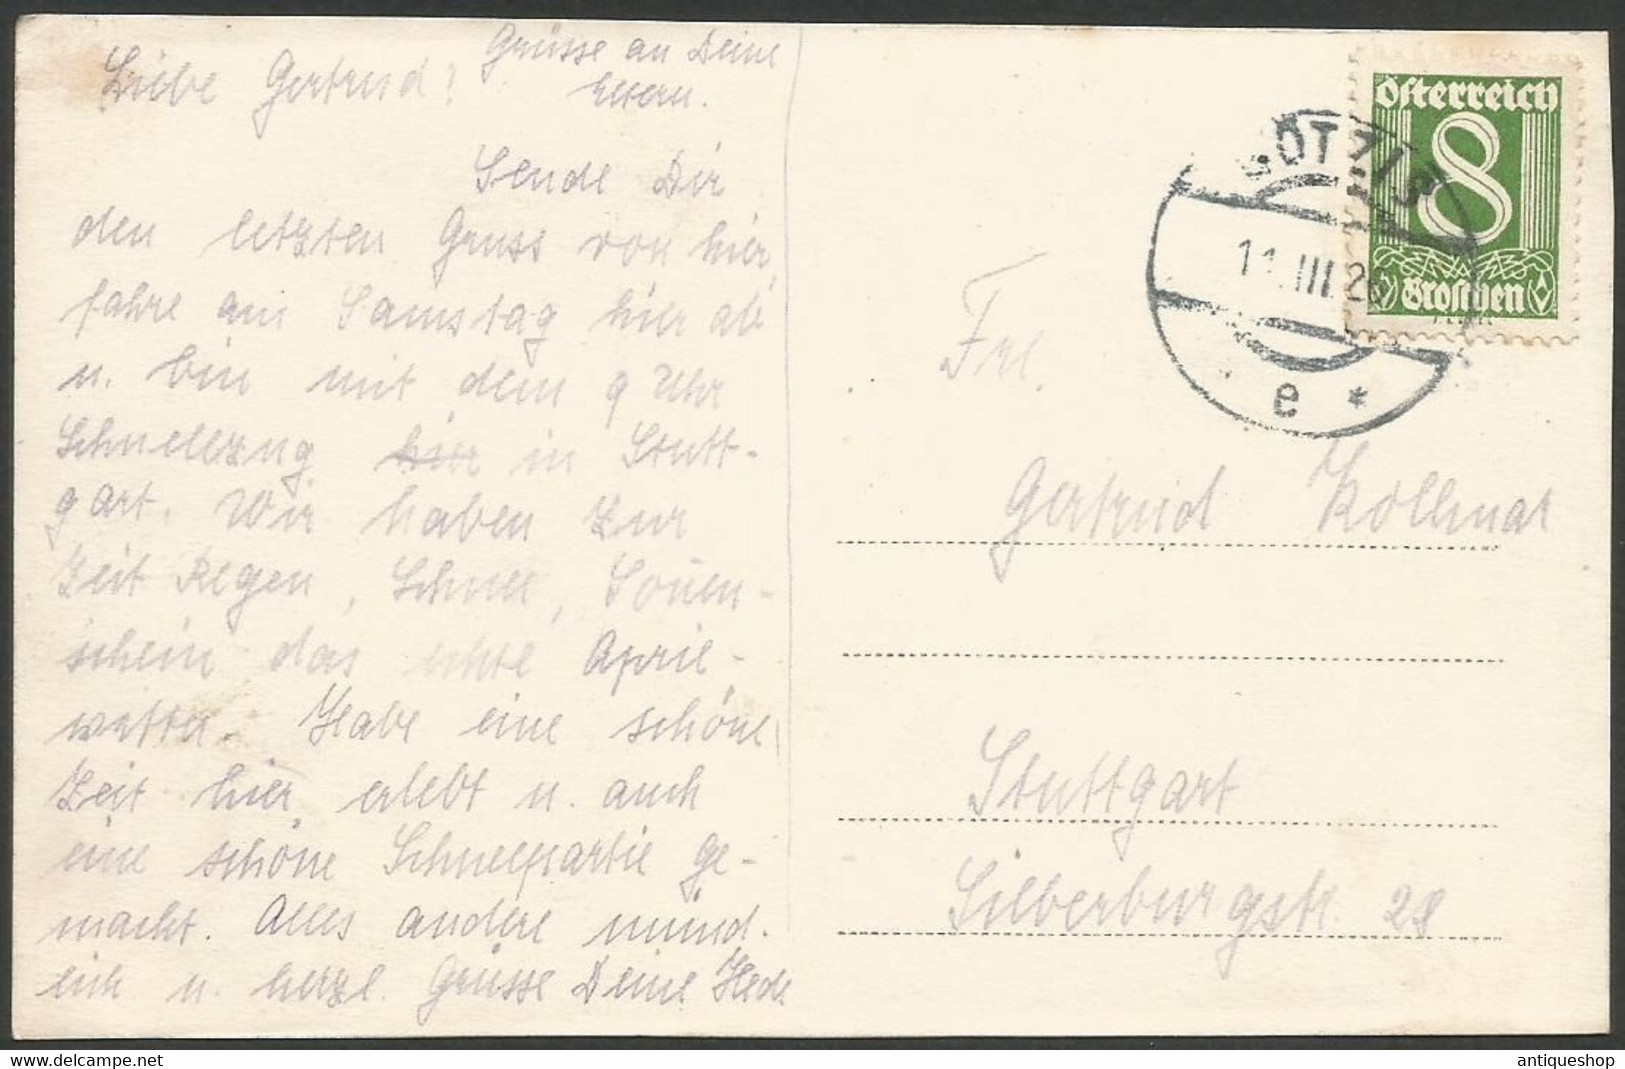 Grüsse an Deine
Eltern.
Liebe Gertrud!
Sende Dir
den letzten Gruss von hier,
fahre am Samstag hier ab
u. bin mit dem 9 Uhr
Schnellzug hier in Stutt-
gart. Wir haben zur
Zeit Regen, Schnee, Sonnen-
schein das echte April-
wetter. Habe eine schöne
Zeit hier erlebt u. auch
eine schöne Schneepartie ge-
macht. Alles andere münd-
lich u. herzl. Grüsse Deine Hede
Österreich
8
Groschen
GÖTZIS
11.III.26
e *
Frl.
Gertrud Kollmar
Stuttgart
Silberburgstr. 28
antiqueshop
www.delcampe.net